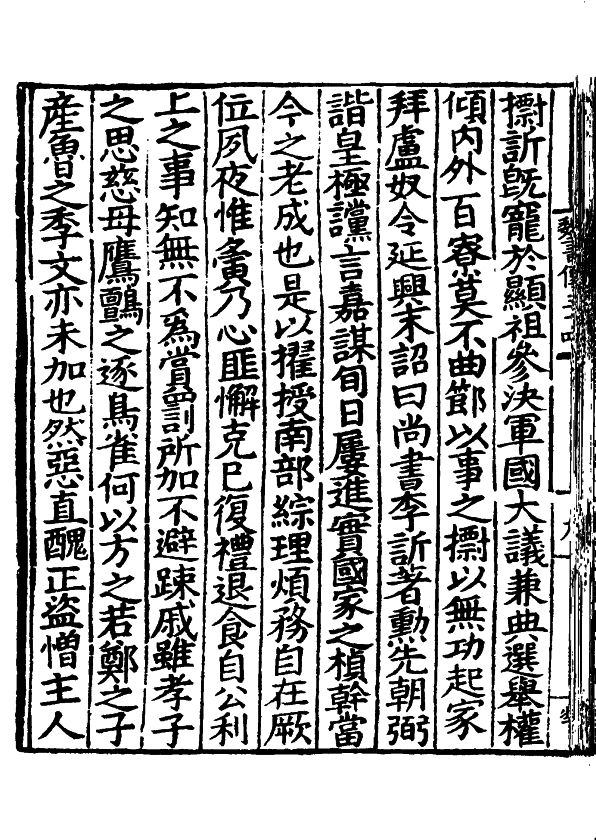 㩽訢旣寵於顯祖參決軍國大議兼典選舉權
傾内外百寮莫不曲節以事之㩽以無功起家
拜盧奴令延興末詔曰尚書李訢著勳先朝弼
諧皇極讜言嘉謀旬日屢進實國家之楨幹當
今之老成也是以擢授南部綜理煩務自在厥
位夙夜惟夤乃心匪懈克己復禮退食自公利
上之事知無不爲賞罰所加不避踈戚雖孝子
之思慈母鷹鸇之逐鳥雀何以方之若鄭之子
産魯之季文亦未加也然惡直醜正盜憎主人